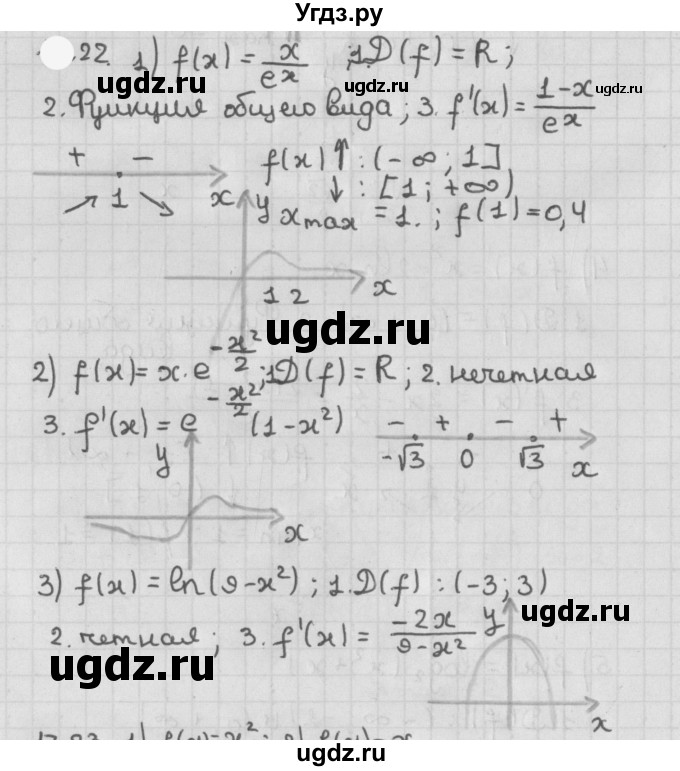 Угдз.ру
22. 1) f(x) = x/eˣ ; 1. D(f) = R ;
ugdz.ru
ugdz.ru
ugdz.ru
2. Функция общего вида ; 3. f'(x) = (1-x)/eˣ
+ - f(x) ↑ : (-∞ ; 1]
↗ 1 ↘ x ↓ : [1 ; +∞)
y xmax = 1. ; f(1) = 0,4
1 2 x
ugdz.ru
2) f(x) = x · e^(-x²/2) ; 1. D(f) = R ; 2. нечетная
3. f'(x) = e^(-x²/2) (1-x²) - + - +
-√3 0 √3 x
y
x
3) f(x) = ln(9-x²) ; 1. D(f) : (-3 ; 3)
ugdz.ru
2. четная ; 3. f'(x) = -2x/(9-x²) y
ugdz.ru
x
ugdz.ru